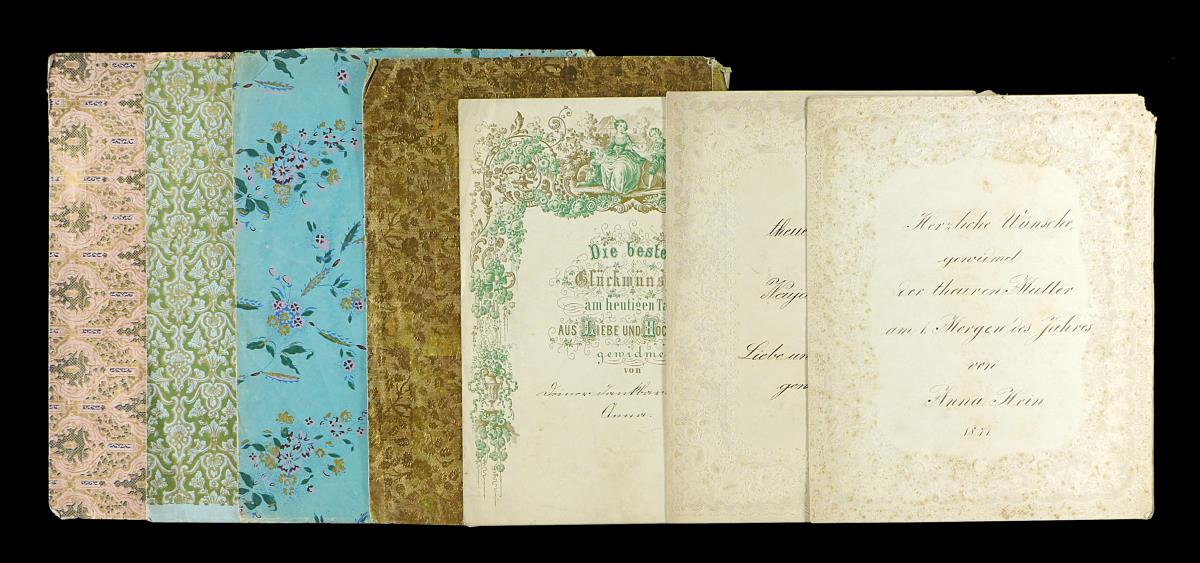 Die beste
Glückwünsch
am heutigen Ta
AUS LIEBE UND HOC
gewidme
von
Deiner dankbar
Anna.
theue
Liebe un
gew
Herzliche Wünsche,
gewiemet
der theuren Mutter
am 1. Morgen des Jahres
von
Anna Hein
1871